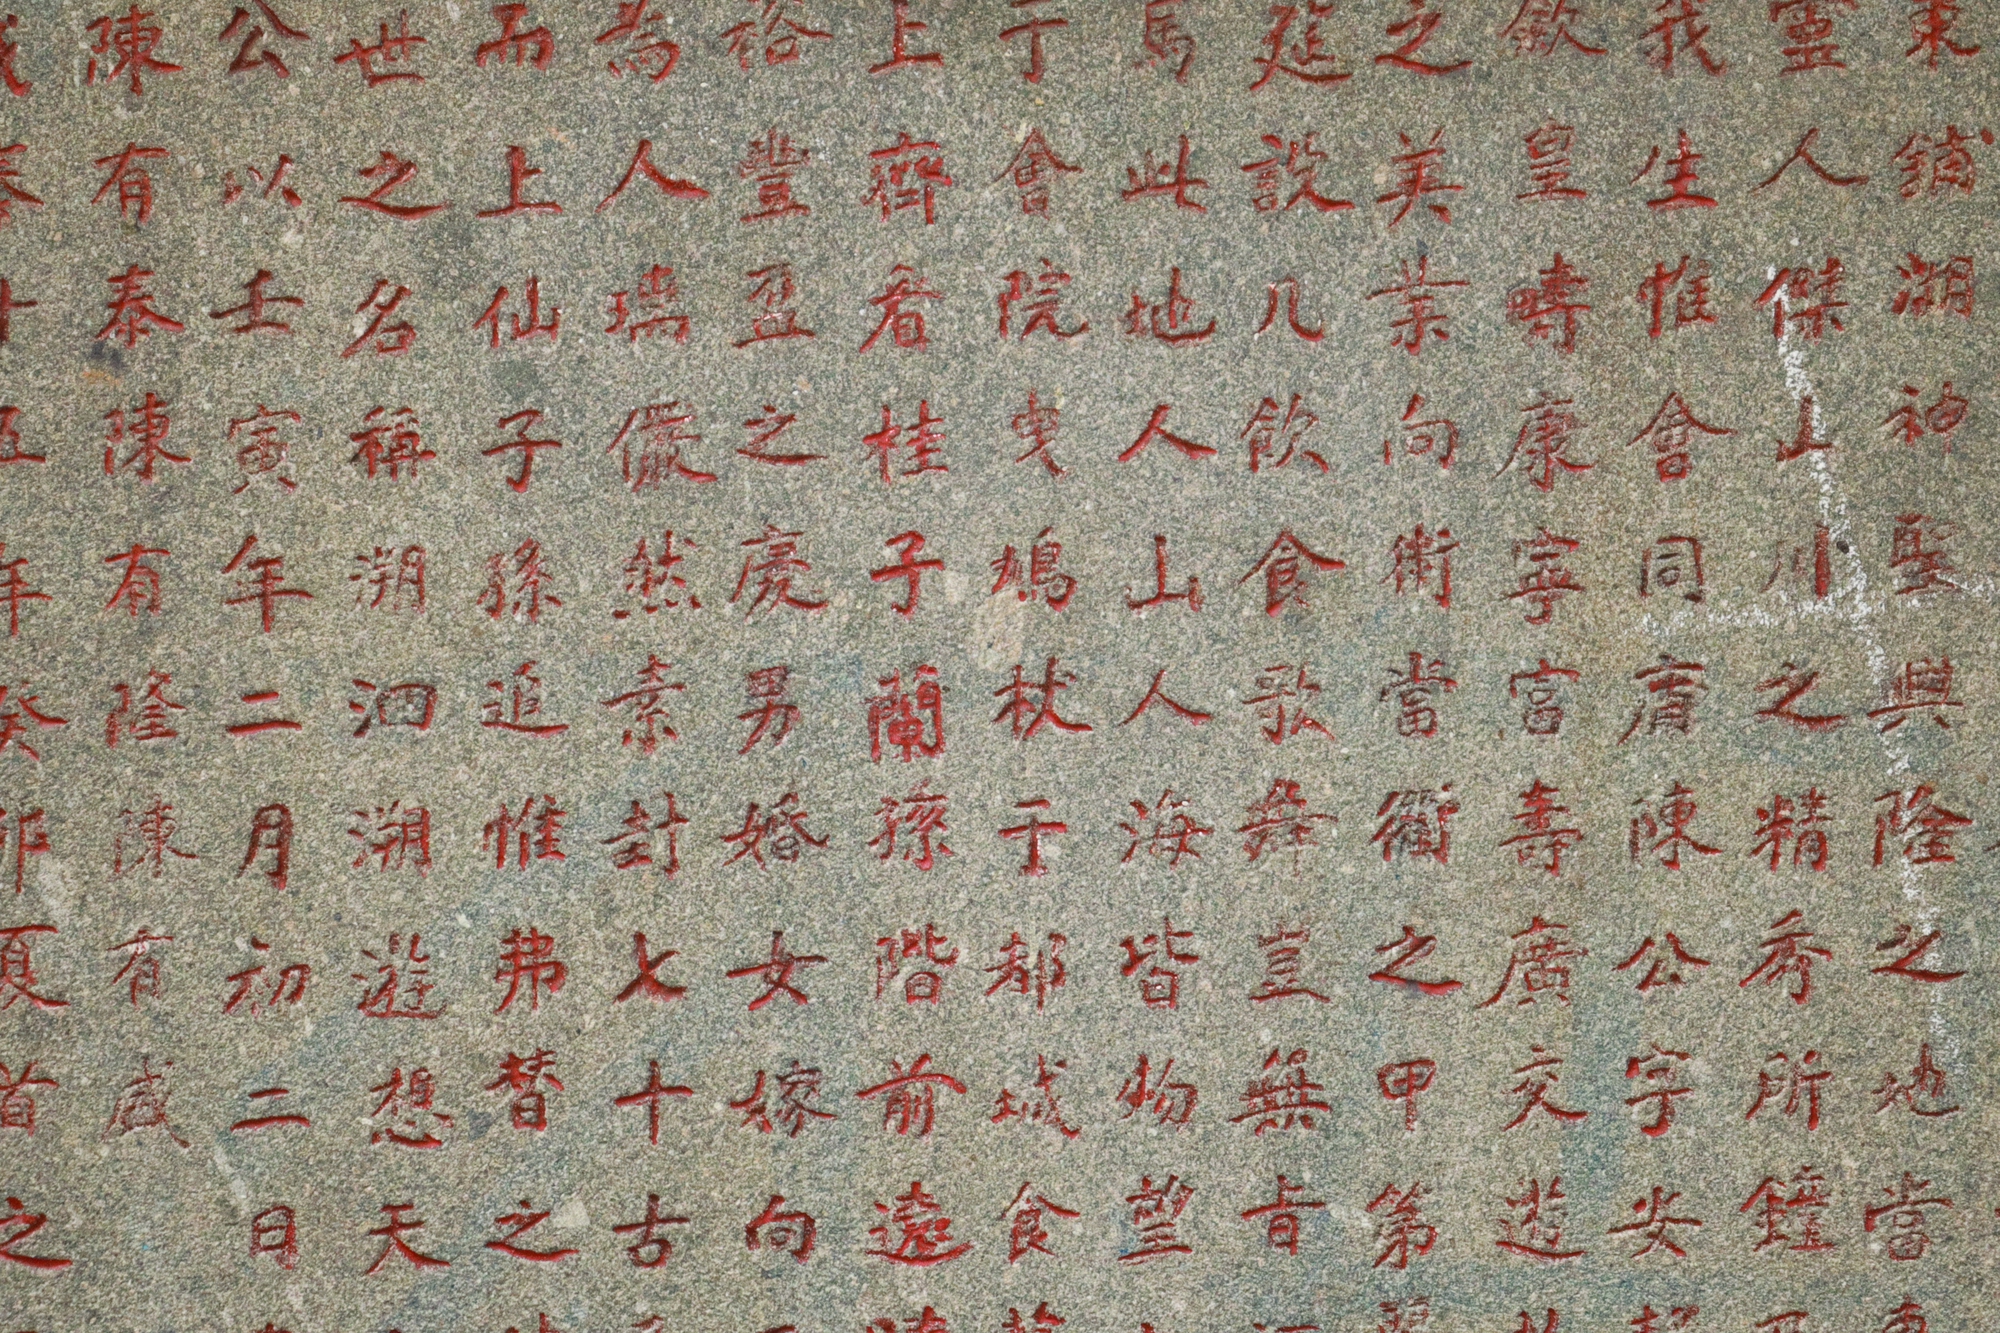 鋪湖神聖興隆之地當
靈人傑山川之精秀所鐘
我生惟會同膺陳公字安
欽皇疇康寧富壽廣交遊
之美業向衛當衢之甲第
筵設几飲食歌舞豈無旨
馬此地人山人海皆物望
于會院曳鳩杖于都城食
上齊眉桂子蘭孫階前遶
裕豐盈之慶男婚女嫁向
為人瑞儼然素封七十古
而上仙子孫追惟弗替之
世之名稱溯泗溯遊想天
公以壬寅年二月初二日
陳有泰陳有隆陳有盛
年癸卯夏首之